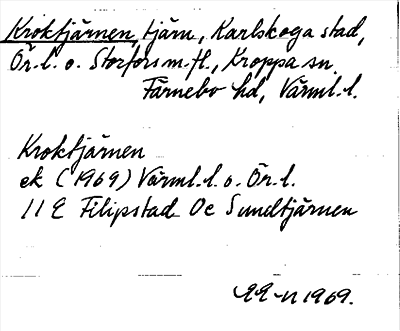 Kroktjärnen, tjärn, Karlskoga stad,
Ör. l. o. Storfors m. fl., Kroppa sn.
Färnebo hd, Värml. l.
Kroktjärnen
ek (1969) Värml. l. o. Ör. l.
11 E Filipstad 0c Sundtjärnen
1969.